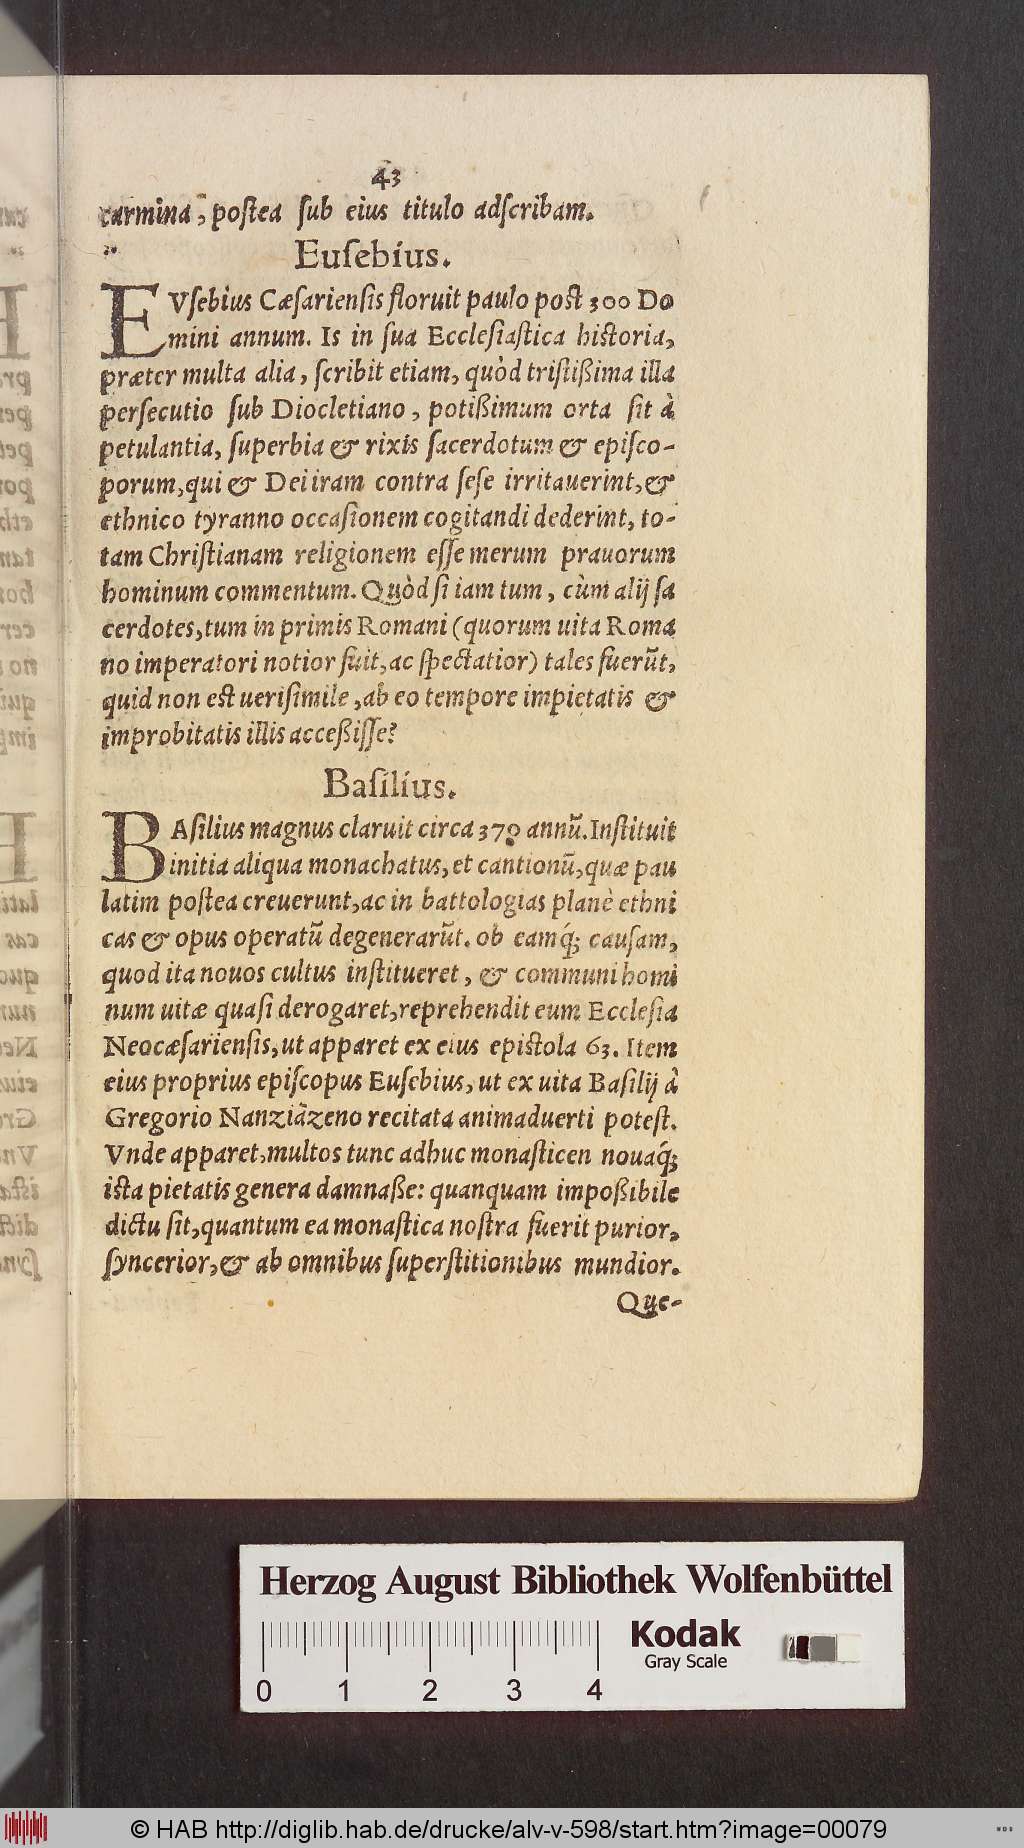 43
carmina, poſtea ſub eius titulo adſcribam.
Euſebius.
EVſebius Cæſarienſis floruit paulo poſt 300 Do
mini annum. Is in ſua Eccleſiaſtica hiſtoria,
præter multa alia, ſcribit etiam, quòd triſtißima illa
perſecutio ſub Diocletiano, potißimum orta ſit à
petulantia, ſuperbia & rixis ſacerdotum & epiſco-
porum, qui & Dei iram contra ſeſe irritauerint, &
ethnico tyranno occaſionem cogitandi dederint, to-
tam Chriſtianam religionem eſſe merum prauorum
hominum commentum. Quòd ſi iam tum, cùm alij ſa
cerdotes, tum in primis Romani (quorum uita Roma
no imperatori notior fuit, ac ſpectatior) tales fuerūt,
quid non eſt ueriſimile, ab eo tempore impietatis &
improbitatis illis acceßiſſe?
Baſilius.
BAſilius magnus claruit circa 370 annū. Inſtituit
initia aliqua monachatus, et cantionū, quæ pau
latim poſtea creuerunt, ac in battologias planè ethni
cas & opus operatū degenerarūt. ob eamq́; cauſam,
quod ita nouos cultus inſtitueret, & communi homi
num uitæ quaſi derogaret, reprehendit eum Eccleſia
Neocæſarienſis, ut apparet ex eius epiſtola 63. Item
eius proprius epiſcopus Euſebius, ut ex uita Baſilij à
Gregorio Nanziāzeno recitata animaduerti poteſt.
Vnde apparet, multos tunc adhuc monaſticen nouaq́;
iſta pietatis genera damnaße: quanquam impoßibile
dictu ſit, quantum ea monaſtica noſtra fuerit purior,
ſyncerior, & ab omnibus ſuperſtitionibus mundior.
Que-
Herzog August Bibliothek Wolfenbüttel
Kodak
Gray Scale
0 1 2 3 4
© HAB http://diglib.hab.de/drucke/alv-v-598/start.htm?image=00079